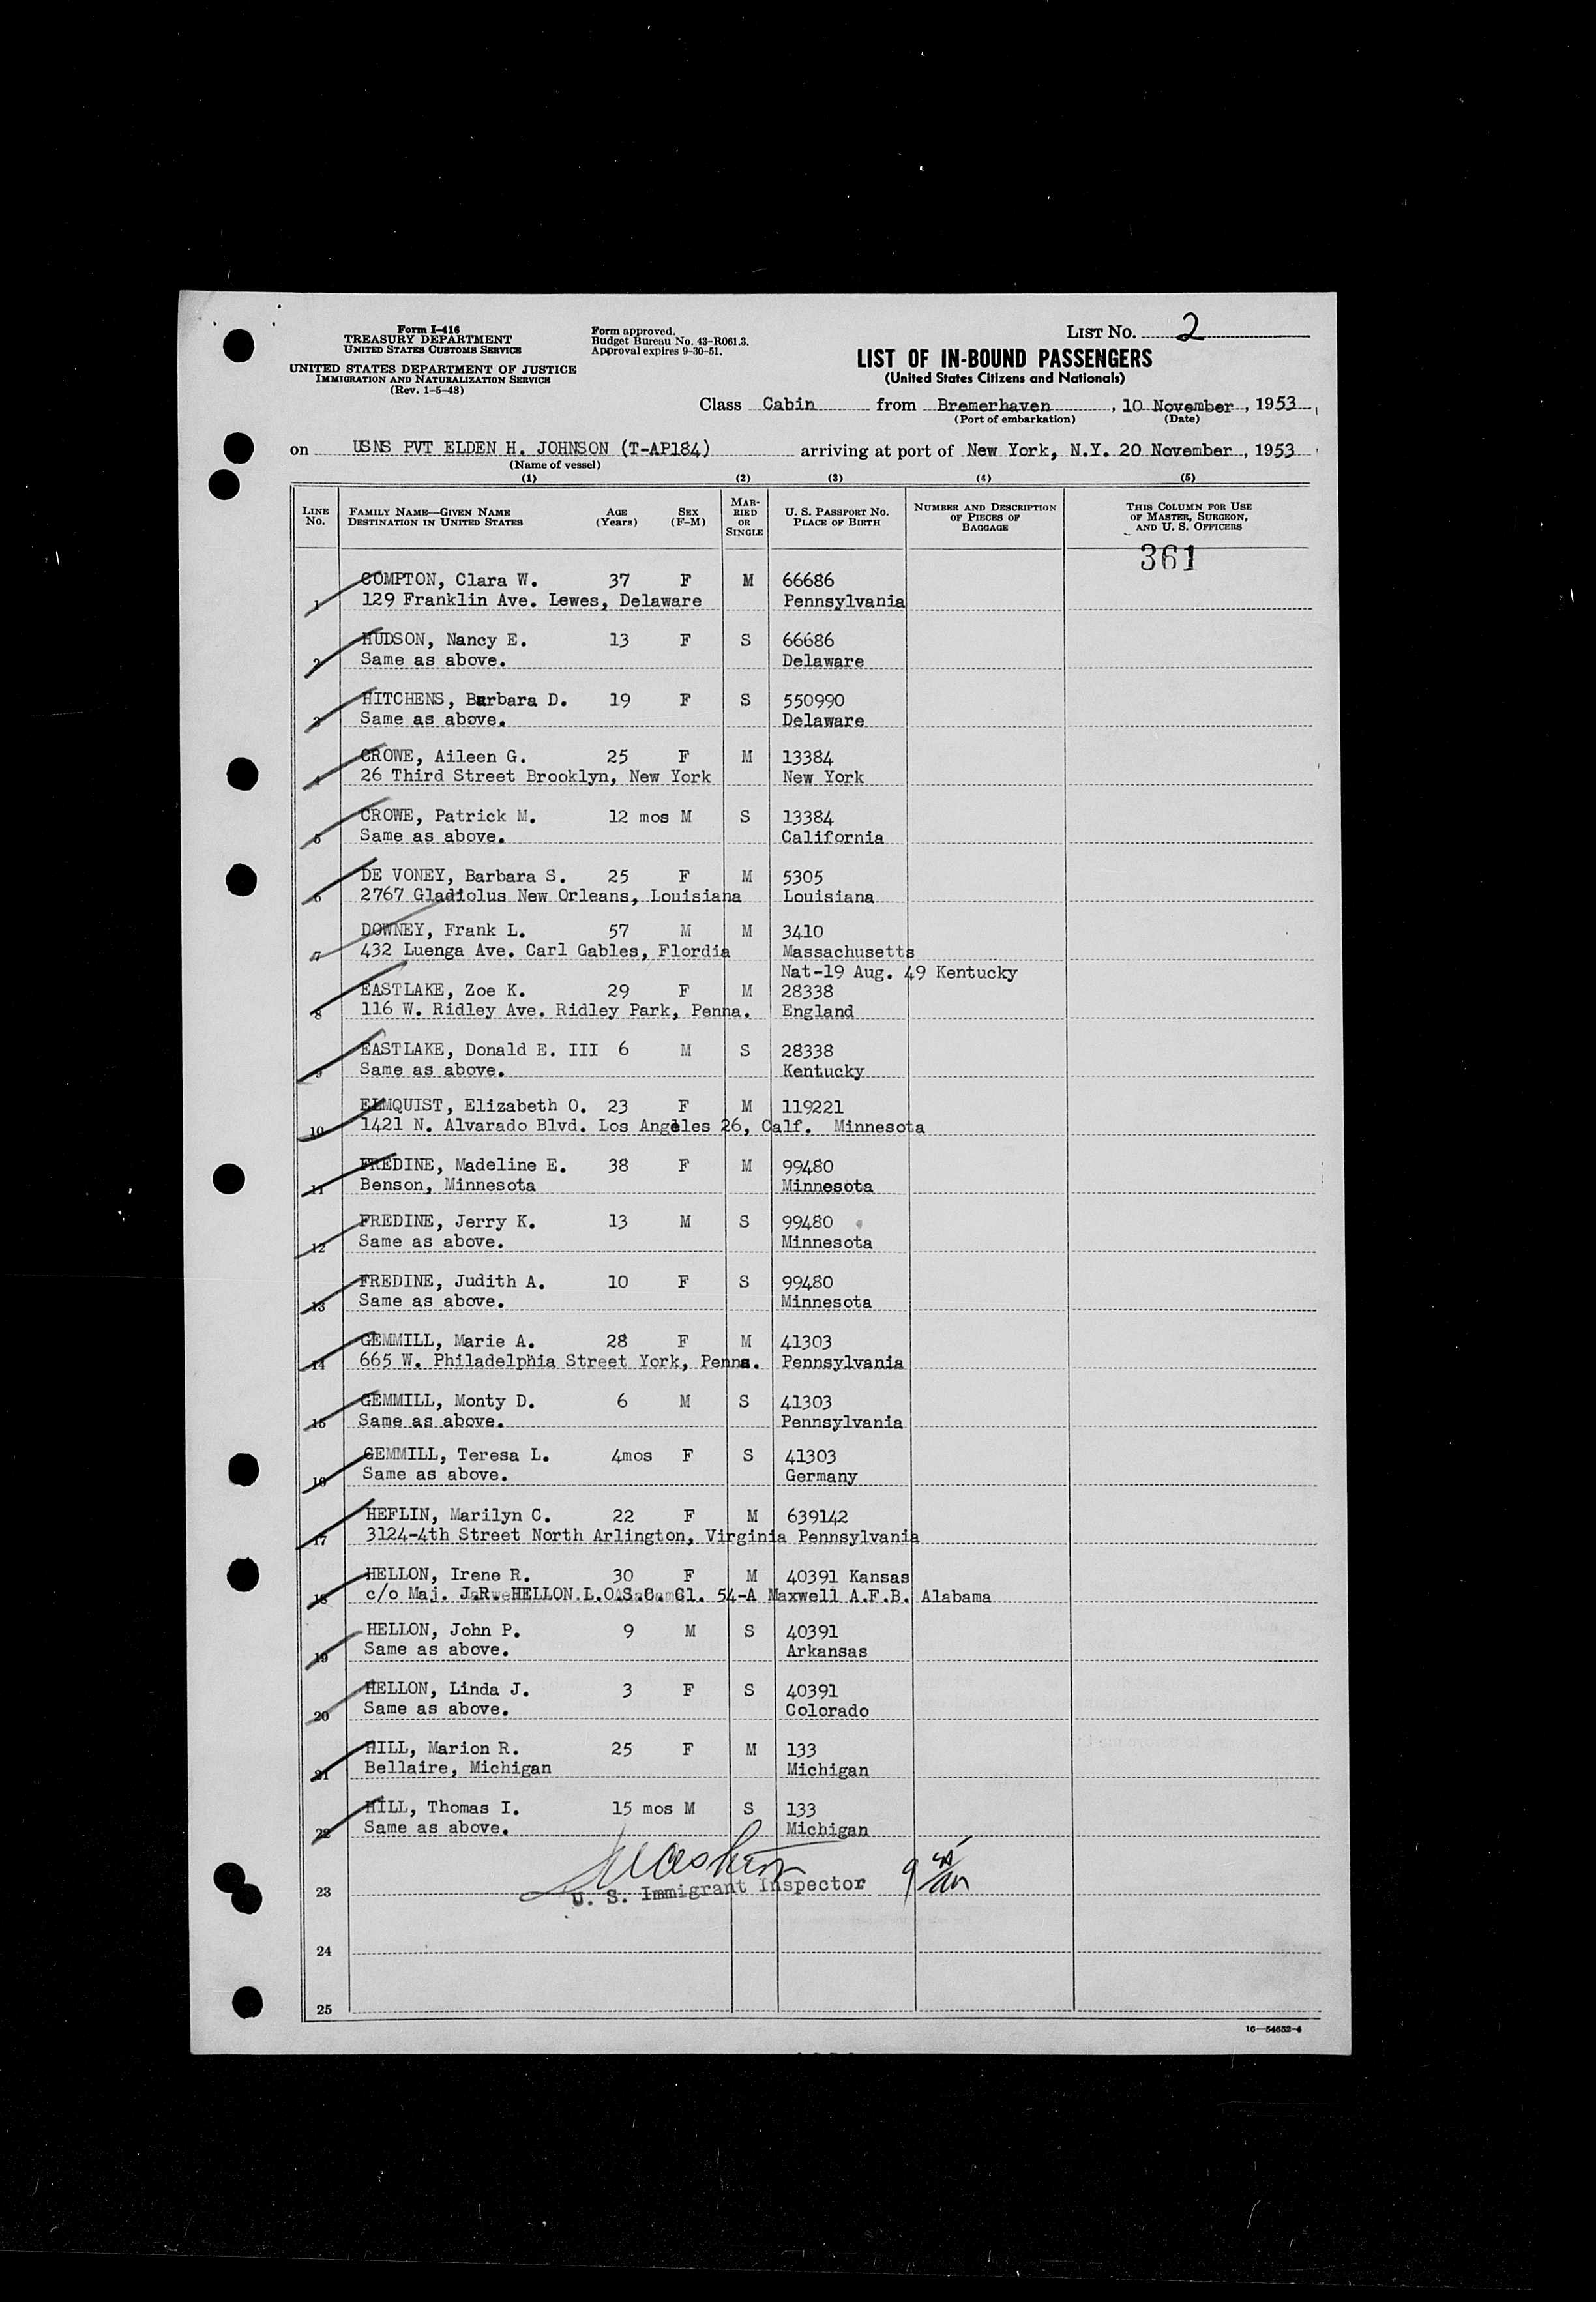 Form I-416
TREASURY DEPARTMENT
UNITED STATES CUSTOMS SERVICE
UNITED STATES DEPARTMENT OF JUSTICE
IMMIGRATION AND NATURALIZATION SERVICE
(Rev. 1-5-48)
Form approved.
Budget Bureau No. 43-R061.3.
Approval expires 9-30-51.
LIST No. 2
LIST OF IN-BOUND PASSENGERS
(United States Citizens and Nationals)
Class Cabin from Bremerhaven, 10 November, 1953
(Port of embarkation) (Date)
on USNS PVT ELDEN H. JOHNSON (T-AP184) arriving at port of New York, N.Y. 20 November, 1953
(Name of vessel)
(1) (2) (3) (4) (5)
LINE No. FAMILY NAME—GIVEN NAME DESTINATION IN UNITED STATES AGE (Years) SEX (F-M) MARRIED OR SINGLE U. S. PASSPORT No. PLACE OF BIRTH NUMBER AND DESCRIPTION OF PIECES OF BAGGAGE THIS COLUMN FOR USE OF MASTER, SURGEON, AND U. S. OFFICERS
361
COMPTON, Clara W. 37 F M 66686
1 129 Franklin Ave. Lewes, Delaware Pennsylvania
HUDSON, Nancy E. 13 F S 66686
2 Same as above. Delaware
HITCHENS, Barbara D. 19 F S 550990
3 Same as above. Delaware
CROWE, Aileen G. 25 F M 13384
4 26 Third Street Brooklyn, New York New York
CROWE, Patrick M. 12 mos M S 13384
5 Same as above. California
DE VONEY, Barbara S. 25 F M 5305
6 2767 Gladiolus New Orleans, Louisiana Louisiana
DOWNEY, Frank L. 57 M M 3410
7 432 Luenga Ave. Carl Gables, Flordia Massachusetts
Nat-19 Aug. 49 Kentucky
EASTLAKE, Zoe K. 29 F M 28338
8 116 W. Ridley Ave. Ridley Park, Penna. England
EASTLAKE, Donald E. III 6 M S 28338
9 Same as above. Kentucky
ELMQUIST, Elizabeth O. 23 F M 119221
10 1421 N. Alvarado Blvd. Los Angeles 26, Calf. Minnesota
FREDINE, Madeline E. 38 F M 99480
11 Benson, Minnesota Minnesota
FREDINE, Jerry K. 13 M S 99480
12 Same as above. Minnesota
FREDINE, Judith A. 10 F S 99480
13 Same as above. Minnesota
GEMMILL, Marie A. 28 F M 41303
14 665 W. Philadelphia Street York, Penna. Pennsylvania
GEMMILL, Monty D. 6 M S 41303
15 Same as above. Pennsylvania
GEMMILL, Teresa L. 4mos F S 41303
16 Same as above. Germany
HEFLIN, Marilyn C. 22 F M 639142
17 3124-4th Street North Arlington, Virginia Pennsylvania
HELLON, Irene R. 30 F M 40391 Kansas
18 c/o Maj. J.R. HELLON L.O.S.C. Cl. 54-A Maxwell A.F.B. Alabama
HELLON, John P. 9 M S 40391
19 Same as above. Arkansas
HELLON, Linda J. 3 F S 40391
20 Same as above. Colorado
HILL, Marion R. 25 F M 133
21 Bellaire, Michigan Michigan
HILL, Thomas I. 15 mos M S 133
22 Same as above. Michigan
23 U. S. Immigrant Inspector
24
25
16—54652-4